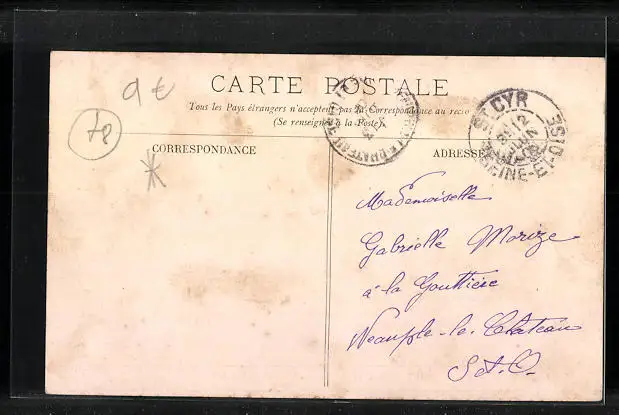 9€
78
CARTE POSTALE
Tous les Pays étrangers n'acceptent pas la Correspondance au recto
(Se renseigner à la Poste).
CORRESPONDANCE
ADRESSE
ST CYR
12
JUIN
SEINE-ET-OISE
Mademoiselle
Gabrielle Morize
à la Gouttière
Neauphle-le-Château
S-et-O-